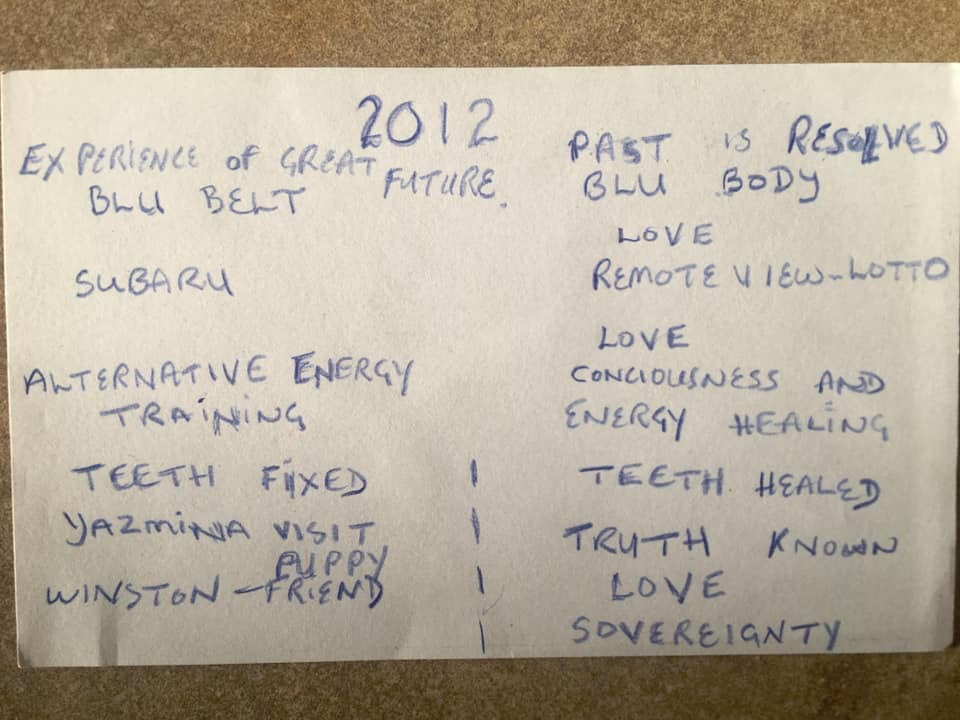 2012
EXPERIENCE of GREAT FUTURE.
BLU BELT
SUBARU
ALTERNATIVE ENERGY
TRAINING
TEETH FIXED
YAZMINA VISIT
PUPPY
WINSTON - FRIEND
PAST IS RESOLVED
BLU BODY
LOVE
REMOTE VIEW - LOTTO
LOVE
CONCIOUSNESS AND
ENERGY HEALING
TEETH HEALED
TRUTH KNOWN
LOVE
SOVEREIGNTY